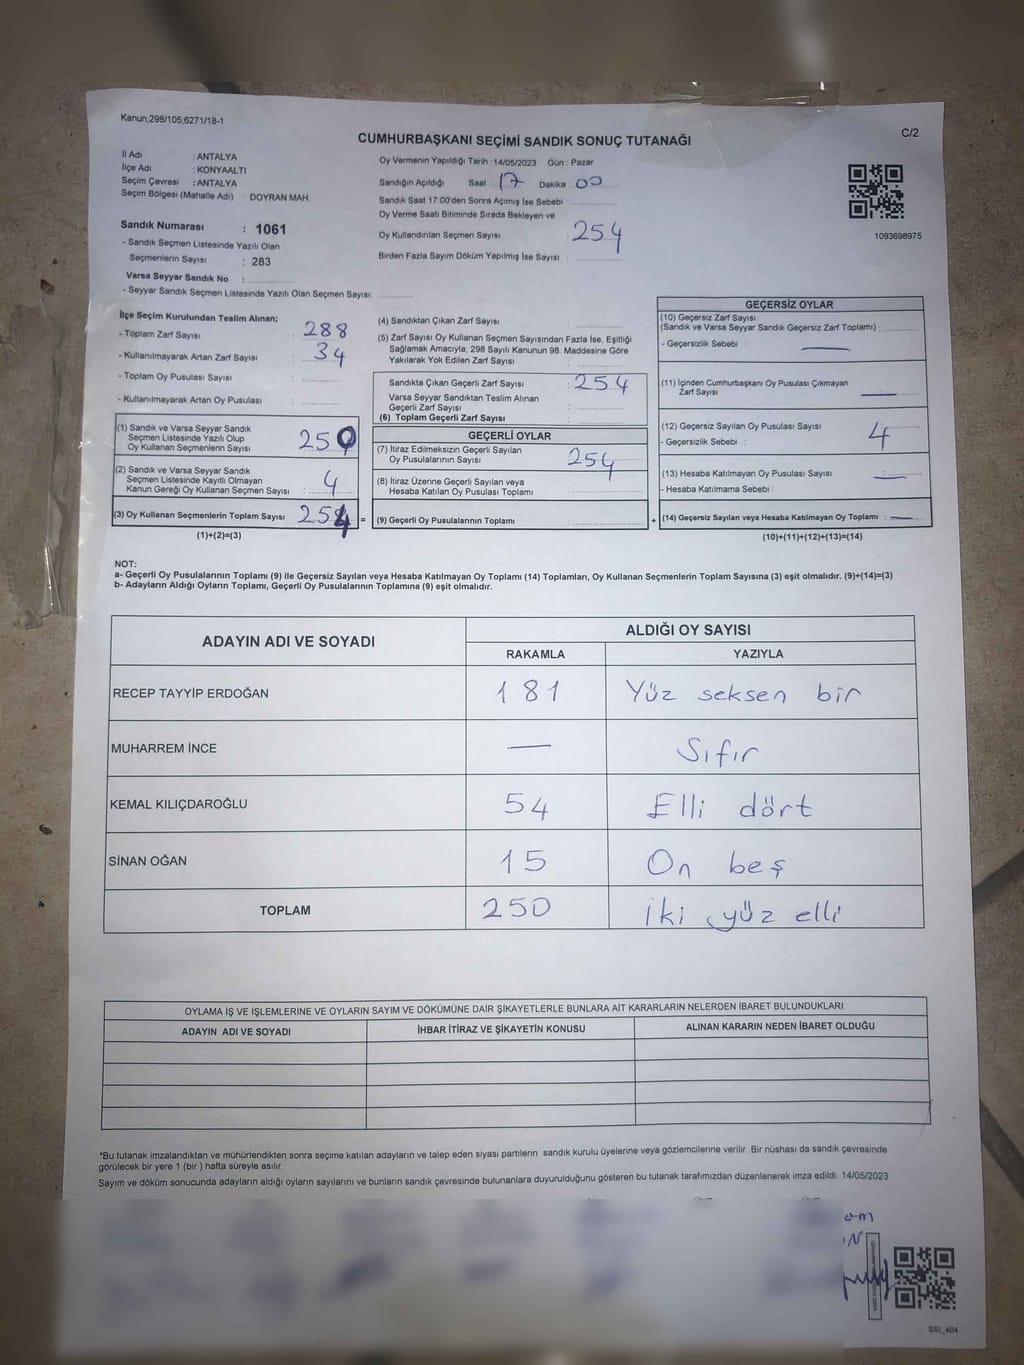 Kanun;298/105,6271/18-1
C/2
CUMHURBAŞKANI SEÇİMİ SANDIK SONUÇ TUTANAĞI
İl Adı : ANTALYA
İlçe Adı : KONYAALTI
Seçim Çevresi : ANTALYA
Seçim Bölgesi (Mahalle Adı) : DOYRAN MAH.
Sandık Numarası : 1061
- Sandık Seçmen Listesinde Yazılı Olan
Seçmenlerin Sayısı : 283
Varsa Seyyar Sandık No :
- Seyyar Sandık Seçmen Listesinde Yazılı Olan Seçmen Sayısı:
Oy Vermenin Yapıldığı Tarih :14/05/2023 Gün : Pazar
Sandığın Açıldığı Saat 17 Dakika : 00
Sandık Saat 17:00'den Sonra Açımış İse Sebebi :
Oy Verme Saati Bitiminde Sırada Bekleyen ve
Oy Kullandırılan Seçmen Sayısı : 254
Birden Fazla Sayım Döküm Yapılmış İse Sayısı :
1093698975
İlçe Seçim Kurulundan Teslim Alınan;
- Toplam Zarf Sayısı : 288
- Kullanılmayarak Artan Zarf Sayısı : 34
- Toplam Oy Pusulası Sayısı :
- Kullanılmayarak Artan Oy Pusulası :
(1) Sandık ve Varsa Seyyar Sandık
Seçmen Listesinde Yazılı Olup
Oy Kullanan Seçmenlerin Sayısı : 250
(2) Sandık ve Varsa Seyyar Sandık
Seçmen Listesinde Kayıtlı Olmayan
Kanun Gereği Oy Kullanan Seçmen Sayısı : 4
(3) Oy Kullanan Seçmenlerin Toplam Sayısı : 254 =
(1)+(2)=(3)
(4) Sandıktan Çıkan Zarf Sayısı :
(5) Zarf Sayısı Oy Kullanan Seçmen Sayısından Fazla İse, Eşitliği
Sağlamak Amacıyla, 298 Sayılı Kanunun 98. Maddesine Göre
Yakılarak Yok Edilen Zarf Sayısı :
Sandıkta Çıkan Geçerli Zarf Sayısı : 254
Varsa Seyyar Sandıktan Teslim Alınan
Geçerli Zarf Sayısı :
(6) Toplam Geçerli Zarf Sayısı :
GEÇERLİ OYLAR
(7) İtiraz Edilmeksizin Geçerli Sayılan
Oy Pusulalarının Sayısı : 254
(8) İtiraz Üzerine Geçerli Sayılan veya
Hesaba Katılan Oy Pusulası Toplamı :
(9) Geçerli Oy Pusulalarının Toplamı : +
GEÇERSİZ OYLAR
(10) Geçersiz Zarf Sayısı
(Sandık ve Varsa Seyyar Sandık Geçersiz Zarf Toplamı) :
- Geçersizlik Sebebi : —
(11) İçinden Cumhurbaşkanı Oy Pusulası Çıkmayan
Zarf Sayısı : —
(12) Geçersiz Sayılan Oy Pusulası Sayısı : 4
- Geçersizlik Sebebi :
(13) Hesaba Katılmayan Oy Pusulası Sayısı : —
- Hesaba Katılmama Sebebi :
(14) Geçersiz Sayılan veya Hesaba Katılmayan Oy Toplamı : —
(10)+(11)+(12)+(13)=(14)
NOT:
a- Geçerli Oy Pusulalarının Toplamı (9) ile Geçersiz Sayılan veya Hesaba Katılmayan Oy Toplamı (14) Toplamları, Oy Kullanan Seçmenlerin Toplam Sayısına (3) eşit olmalıdır. (9)+(14)=(3)
b- Adayların Aldığı Oyların Toplamı, Geçerli Oy Pusulalarının Toplamına (9) eşit olmalıdır.
ADAYIN ADI VE SOYADI ALDIĞI OY SAYISI
RAKAMLA YAZIYLA
RECEP TAYYİP ERDOĞAN 181 Yüz seksen bir
MUHARREM İNCE — Sıfır
KEMAL KILIÇDAROĞLU 54 Elli dört
SİNAN OĞAN 15 On beş
TOPLAM 250 iki yüz elli
OYLAMA İŞ VE İŞLEMLERİNE VE OYLARIN SAYIM VE DÖKÜMÜNE DAİR ŞİKAYETLERLE BUNLARA AİT KARARLARIN NELERDEN İBARET BULUNDUKLARI
ADAYIN ADI VE SOYADI İHBAR İTİRAZ VE ŞİKAYETİN KONUSU ALINAN KARARIN NEDEN İBARET OLDUĞU
*Bu tutanak imzalandıktan ve mühürlendikten sonra seçime katılan adayların ve talep eden siyasi partilerin sandık kurulu üyelerine veya gözlemcilerine verilir. Bir nüshası da sandık çevresinde
görülecek bir yere 1 (bir ) hafta süreyle asılır.
Sayım ve döküm sonucunda adayların aldığı oyların sayılarını ve bunların sandık çevresinde bulunanlara duyurulduğunu gösteren bu tutanak tarafımızdan düzenlenerek imza edildi. 14/05/2023